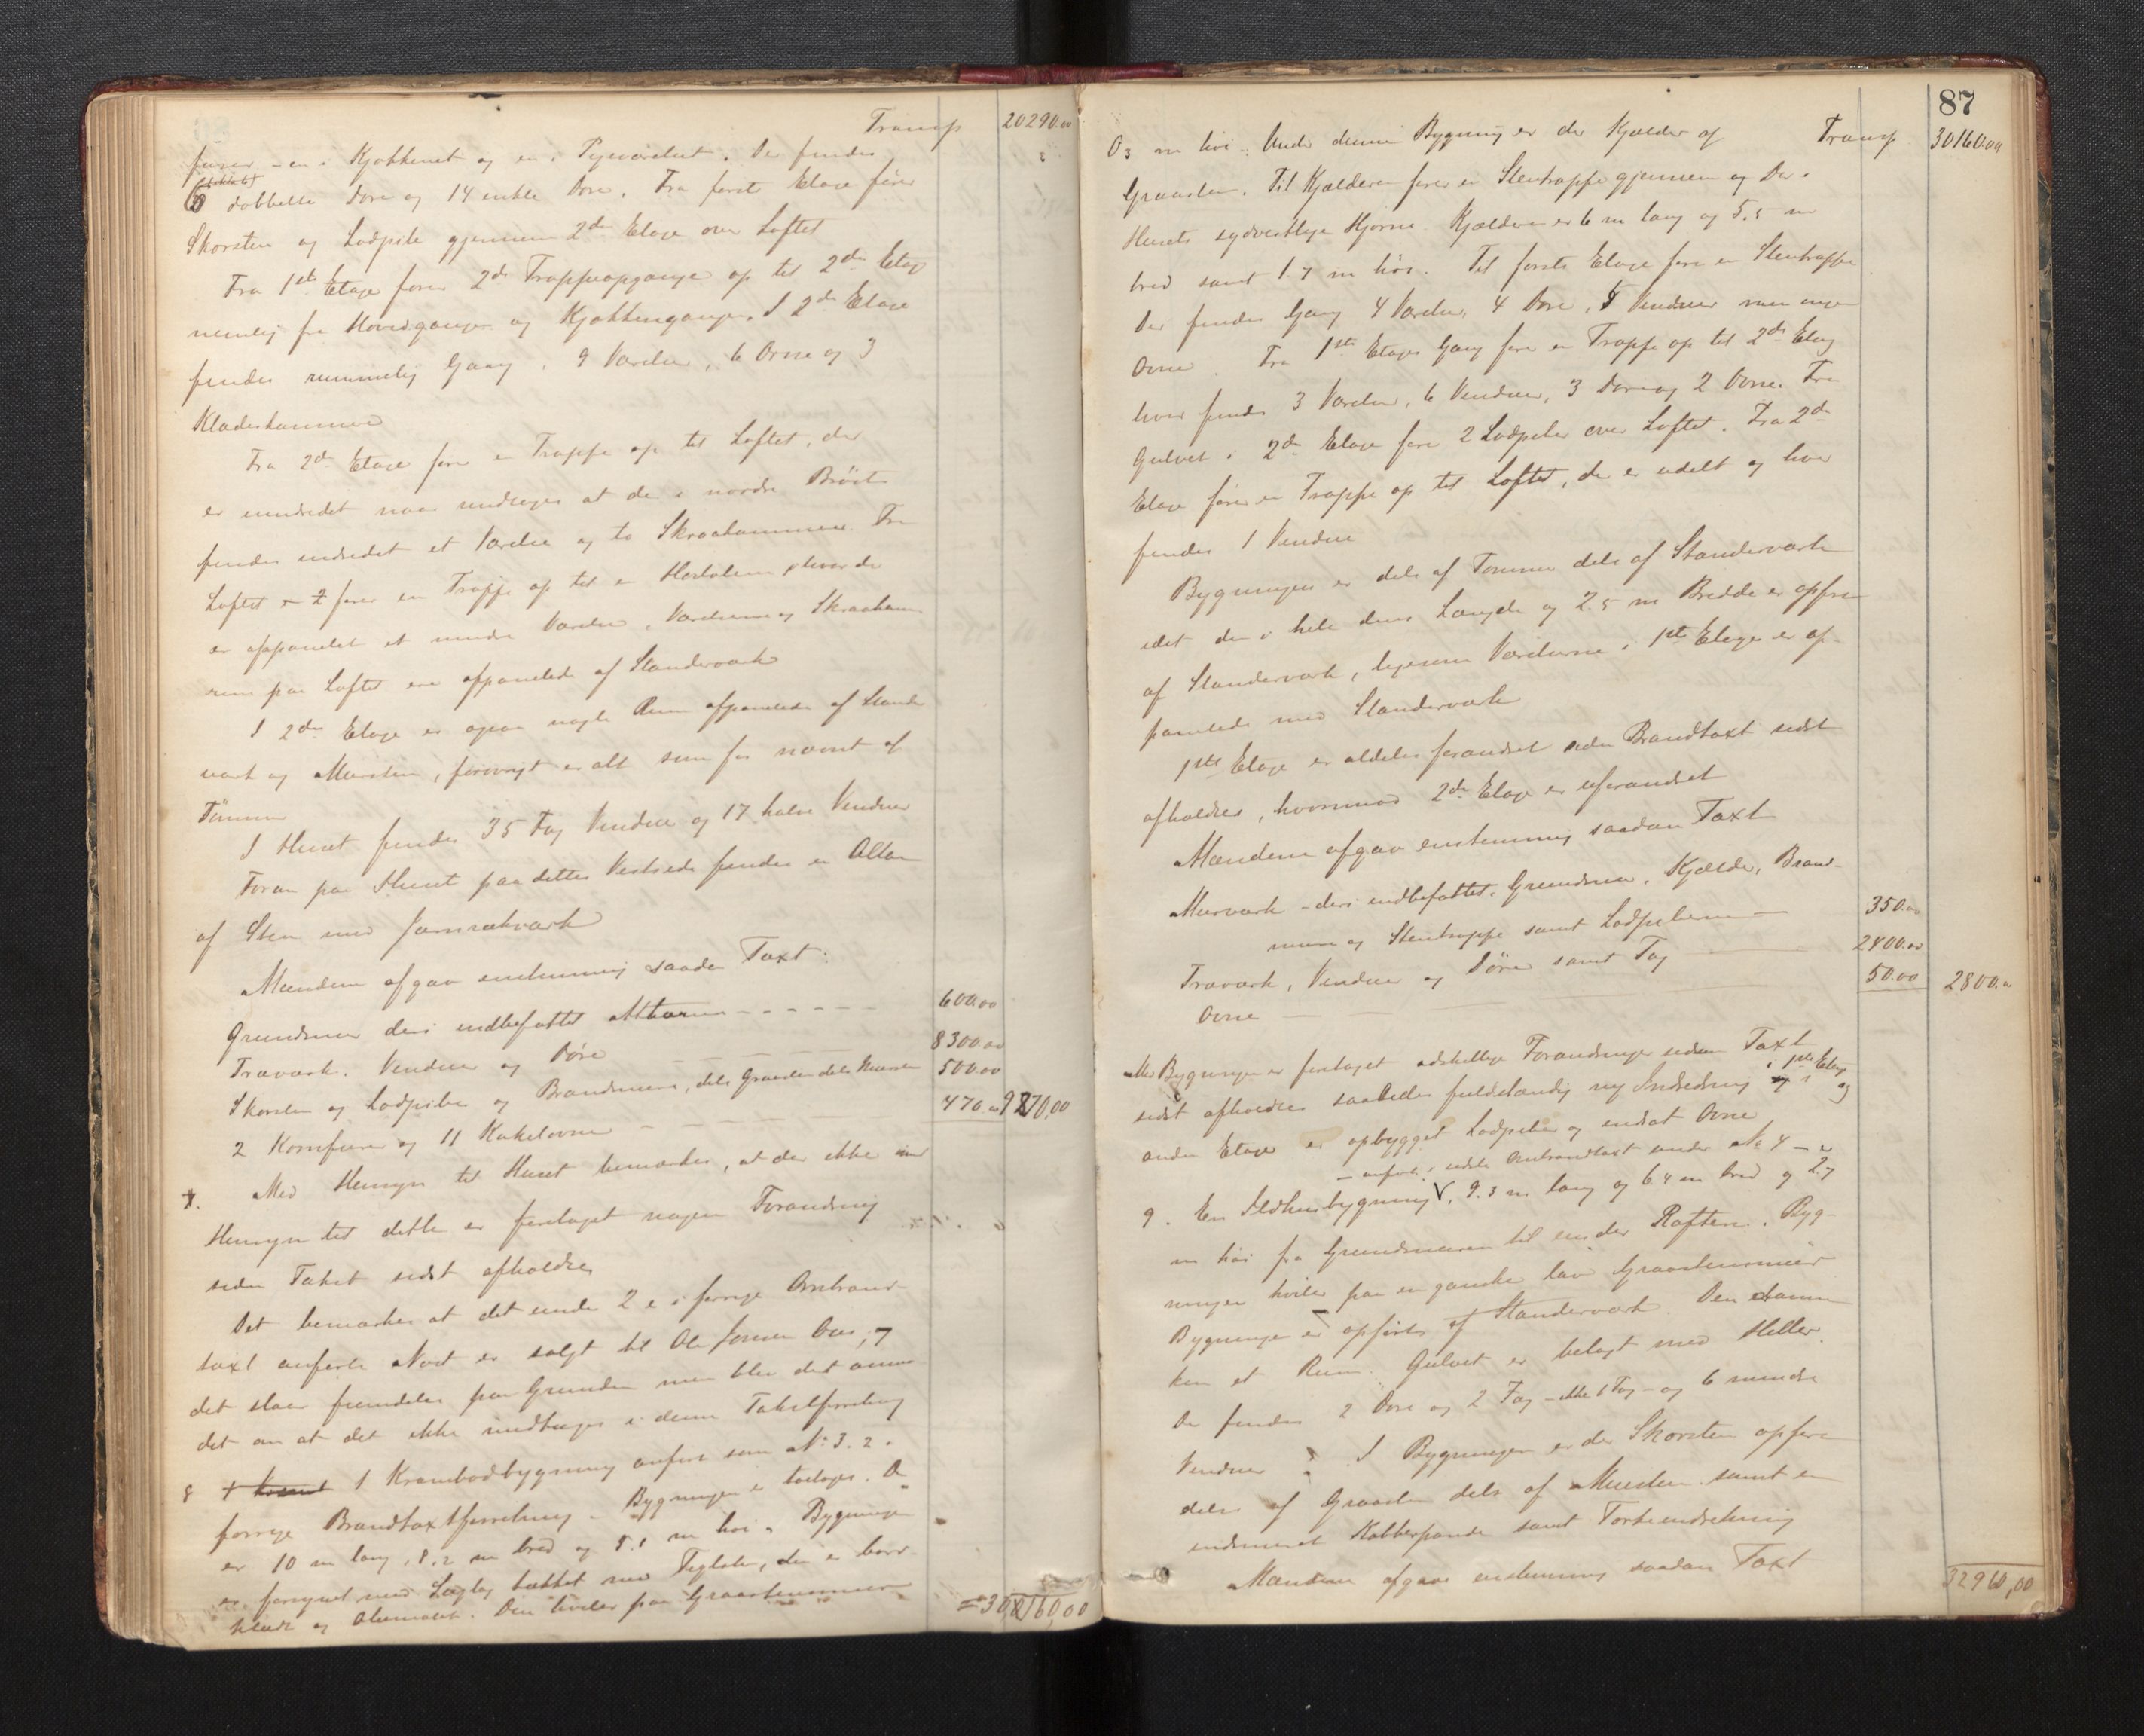 Transp 20290.00
furer - en i Kjøkkenet og en i Pigeværelset. Der findes
6 dobbelte Døre og 14 enkle Døre. Fra første Etage fører
Skorsten og Lodpibe gjennem 2den Etage over Loftet
Fra 1ste Etage fører 2de Trappeopgange op til 2den Etage
nemlig fra Hovedgangen og Kjøkkengangen. I 2den Etage
findes rummelig Gang, 9 Værelser, 6 Ovne og 3
Klædeskammere
Fra 2den Etage fører en Trappe op til Loftet, der
er uindredet naar undtages at der i nordre Brøst
findes indredet et Værelse og to Skraakammere. Fra
Loftet fører en Trappe op til en Hanebjelke hvor der
er afpanelet et mindre Værelse. Værelserne og Skraakam
rene paa Loftet ere afpanelede af Standerværk
I 2den Etage er ogsaa nogle Rum afpanelede af Stander
værk og Mursten, forøvrigt er alt som før nævnt af
Tømmer
I Huset findes 35 Fag Vinduer og 17 halve Vinduer
Foran paa Huset paa dettes Vestside findes en Altan
af Sten med Jernrækværk
Mændene afgav enstemmig saadan Taxt:
Grundmur deri indbefattet Altanen - - - - - 600.00
Træværk, Vinduer og Døre 8300.00
Skorsten og Lodpiber og Brandmure, dels Graasten dels Mursten 500.00
2 Komfurer og 11 Kakelovne 470.00 9870,00
7. Med Hensyn til Huset bemærkes, at der ikke med
Hensyn til dette er foretaget nogen Forandring
siden Takst sidst afholdtes
Det bemærkes at det under 2 e i forrige Ombrand
taxt anførte Nøst er solgt til Ole Jensen Aas;
det staar fremdeles paa Grunden men blev det anmo
det om at det ikke medtages i denne Takstforretning
8 1 Krambodbygning anført som No 3. 2.
forrige Brandtaxtforretning. Bygningen er toetages. De
er 10 m lang, 8.2 m bred og 5.1 m høi. Bygningen
er forsynet med Lægtag tækket med Teglsten, den er bord
klædt og oliemalet. Den hviler paa Graastensmur
= 30,160,00
87
0,3 m høi. Under denne Bygning er der Kjælder af Transp 30160.00
Graasten. Til Kjælderen fører en Stentrappe gjennem og Dør i
Husets sydvestlige Hjørne. Kjælderen er 6 m lang og 5.5 m
bred samt 1.7 m høi. Til første Etage fører en Stentrappe
Der findes Gang 4 Værelser, 4 Døre, 5 Vinduer men ingen
Ovne. Fra 1ste Etages Gang fører en Trappe op til 2den Etage
hvor findes 3 Værelser, 6 Vinduer, 3 Døre og 2 Ovne. Fra
Gulvet i 2den Etage fører 2 Lodpiber over Loftet. Fra 2den
Etage fører en Trappe op til Loftet, der er udelt og hvor
findes 1 Vindue
Bygningen er dels af Tømmer dels af Standerværk
idet den i hele dens Længde og 2.5 m Bredde er opført
af Standerværk, ligesom Værelserne i 1ste Etage er af-
panelede med Standerværk
1ste Etage er aldeles forandret siden Brandtaxt sidst
afholdtes, hvorimod 2den Etage er uforandret
Mændene afgav enstemmig saadan Taxt
Murværk - deri indbefattet Grundmur, Kjælder, Brand-
mure og Stentrappe samt Lodpiberne - 350.00
Træværk, Vinduer og Døre samt Tag 2400.00
Ovne 50.00 2800.00
Med Bygningen er foretaget adskillige Forandringer siden Taxt
sidst afholdtes saaledes fuldstændig ny Indredning i 1ste Etage og i
anden Etage er opbygget Lodpiber og indsat Ovne
- anført i sidste Ombrandtaxt under No 4 -
9. En Ildhusbygning, 9.3 m lang og 6.4 m bred og 2.7
m høi fra Grundmuren til under Raften. Byg-
ningen hviler paa en ganske lav Graastensmur
Bygningen er opført af Standerværk. Den danner
kun et Rum. Gulvet er belagt med Heller.
Der findes 2 Døre og 2 Fag - ikke 1 Fag - og 6 mindre
Vinduer. I Bygningen er der Skorsten opført
dels af Graasten dels af Mursten samt en
indmuret Kobberpande samt Tørkeindretning
Mændene afgave enstemmig saadan Taxt
32960,00